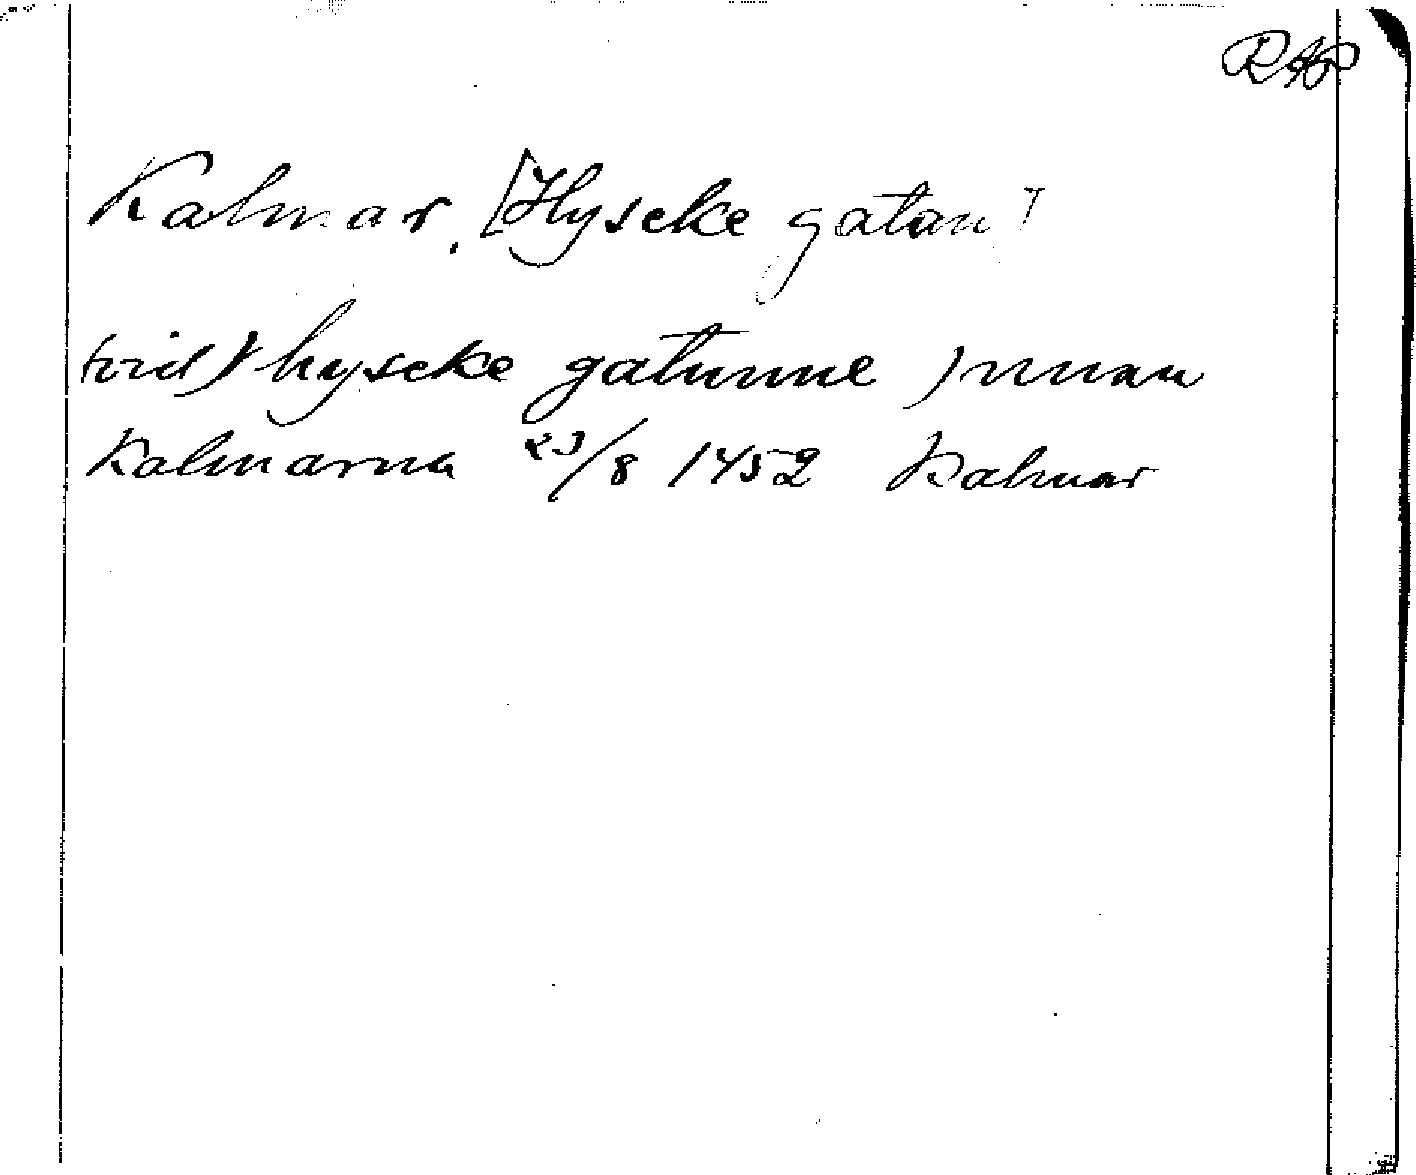 RAP
Kalmar. [Hyseke gatan]
(vid) hyseke gatunne ) innan
Kalmarna 23/8 1452 Kalmar